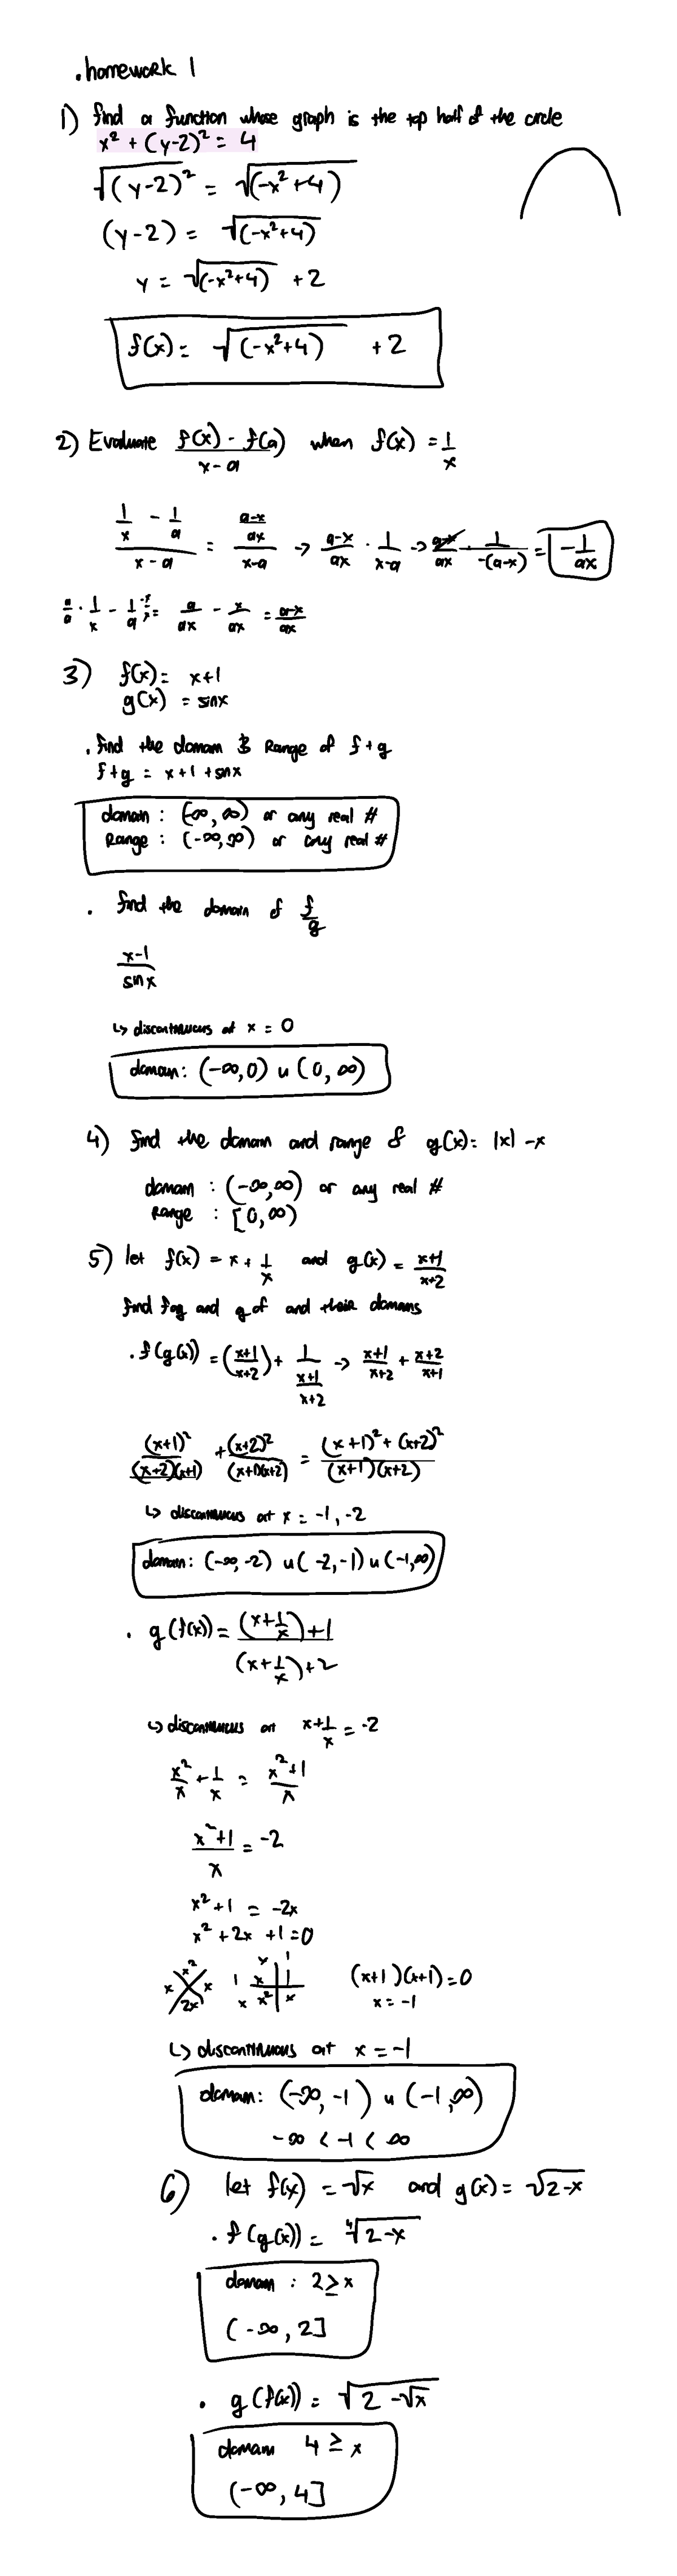 . homework 1
1) find a function whose graph is the top half of the circle
x² + (y-2)² = 4
√(y-2)² = √(-x²+4)
(y-2) = √(-x²+4)
y = √(-x²+4) + 2
f(x) = √(-x²+4) + 2
2) Evaluate (f(x) - f(a))/(x-a) when f(x) = 1/x
(1/x - 1/a)/(x-a) = ((a-x)/ax)/(x-a) → (a-x)/ax · 1/(x-a) → (a-x)/ax · 1/(-(a-x)) = -1/ax
a/a · 1/x - 1/a · x/x = a/ax - x/ax = (a-x)/ax
3) f(x) = x+1
g(x) = sinx
. find the domain & Range of f+g
f+g = x+1+sinx
domain : (-∞, ∞) or any real #
Range : (-∞, ∞) or any real #
. find the domain of f/g
(x-1)/sinx
↳ discontinuous at x = 0
domain: (-∞,0) u (0, ∞)
4) find the domain and range of g(x) = |x| -x
domain : (-∞,∞) or any real #
Range : [0,∞)
5) let f(x) = x + 1/x and g(x) = (x+1)/(x+2)
find fog and gof and their domains
. f(g(x)) = ((x+1)/(x+2)) + 1/((x+1)/(x+2)) → (x+1)/(x+2) + (x+2)/(x+1)
(x+1)²/((x+2)(x+1)) + (x+2)²/((x+1)(x+2)) = ((x+1)² + (x+2)²)/((x+1)(x+2))
↳ discontinuous at x = -1, -2
domain: (-∞,-2) u (-2,-1) u (-1,∞)
. g(f(x)) = ((x+1/x)+1)/((x+1/x)+2)
↳ discontinuous at x+1/x = -2
x²/x + 1/x = (x²+1)/x
(x²+1)/x = -2
x²+1 = -2x
x²+2x+1=0
x² x x 2x
x 1
1 x 1
x x² x
(x+1)(x+1)=0
x = -1
↳ discontinuous at x = -1
domain: (-∞, -1) u (-1,∞)
-∞ < -1 < ∞
6) let f(x) = √x and g(x) = √2-x
. f(g(x)) = ⁴√2-x
domain : 2≥x
(-∞, 2]
. g(f(x)) = √2-√x
domain 4 ≥ x
(-∞, 4]